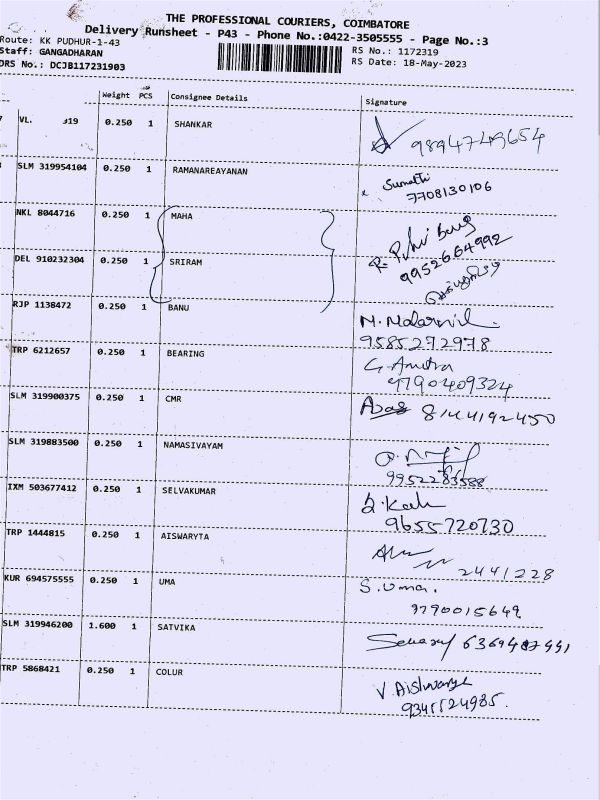 THE PROFESSIONAL COURIERS, COIMBATORE
Delivery Runsheet - P43 - Phone No.:0422-3505555 - Page No.:3
Route: KK PUDHUR-1-43 RS No.: 1172319
Staff: GANGADHARAN RS Date: 18-May-2023
DRS No.: DCJB117231903
Weight PCS Consignee Details Signature
VL. 319 0.250 1 SHANKAR 9894749654
SLM 319954104 0.250 1 RAMANAREAYANAN Sumathi
7708130106
NKL 8044716 0.250 1 MAHA
9952664992
DEL 910232304 0.250 1 SRIRAM
RJP 1138472 0.250 1 BANU
9585272978
TRP 6212657 0.250 1 BEARING
9790409324
SLM 319900375 0.250 1 CMR 8144192450
SLM 319883500 0.250 1 NAMASIVAYAM
9952283588
IXM 503677412 0.250 1 SELVAKUMAR
9655720730
TRP 1444815 0.250 1 AISWARYTA
2441228
KUR 694575555 0.250 1 UMA S. Uma.
9790015649
SLM 319946200 1.600 1 SATVIKA
TRP 5868421 0.250 1 COLUR V. Aishwarya